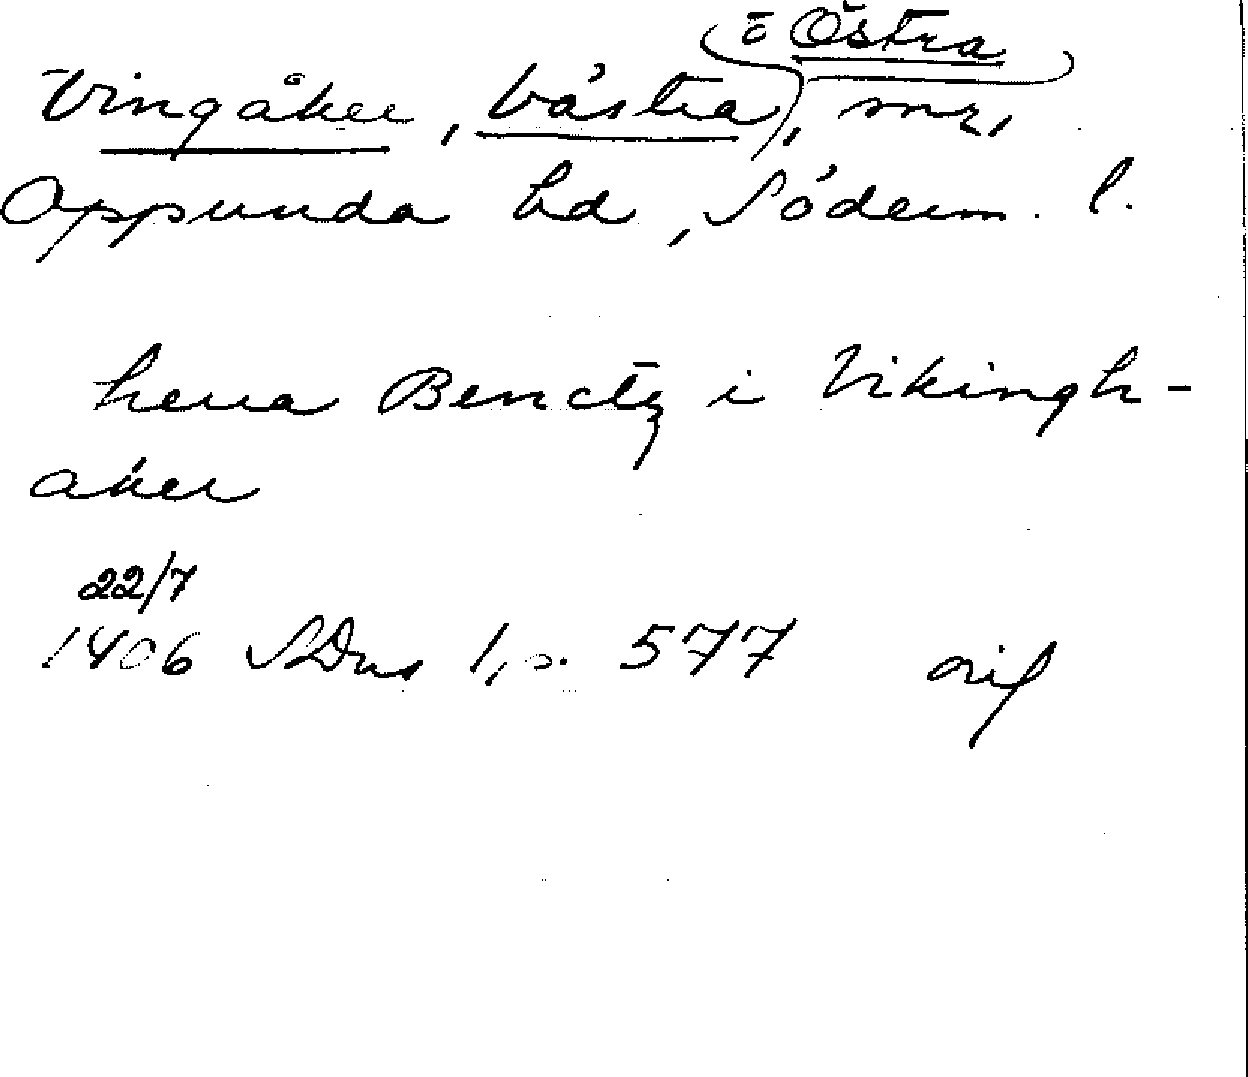 (o Östra)
Vingåker, Västra, snr,
Oppunda hd, Söderm. l.
herra Benctz i Vikingh-
aker
22/7
1406 SDns 1, s. 577 orig